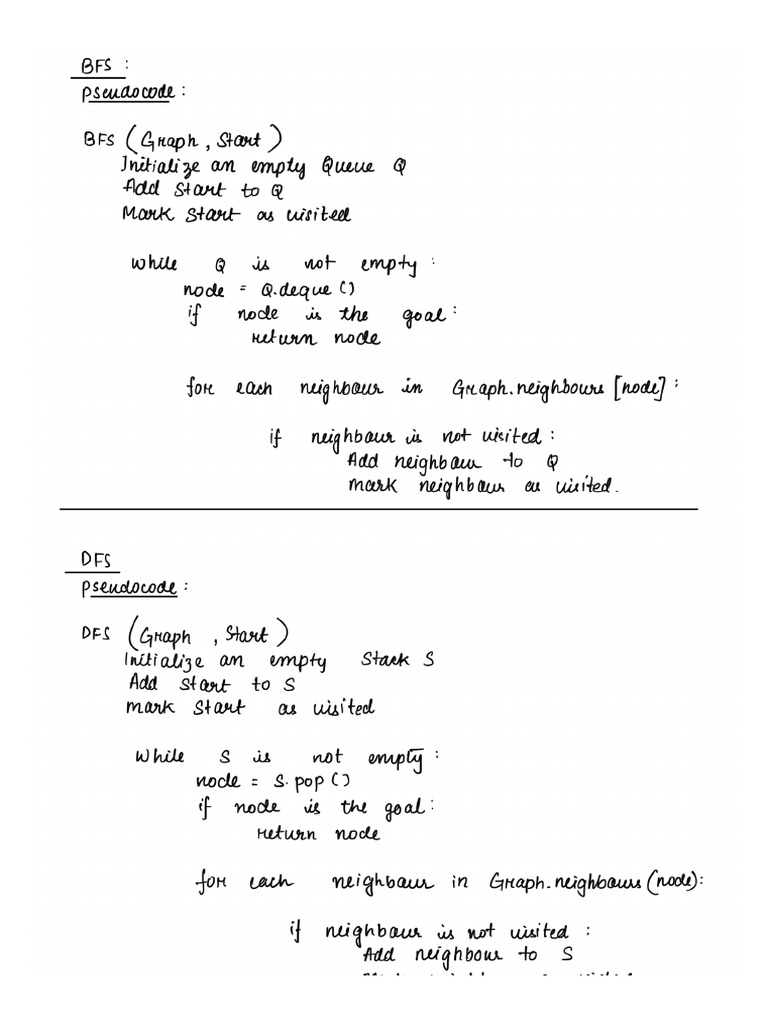 BFS :
Pseudocode :
BFS (Graph, Start)
Initialize an empty Queue Q
Add Start to Q
Mark Start as visited
while Q is not empty :
node = Q.deque()
if node is the goal :
return node
for each neighbour in Graph.neighbours [node] :
if neighbour is not visited :
Add neighbour to Q
mark neighbour as visited.
DFS
Pseudocode :
DFS (Graph, Start)
Initialize an empty Stack S
Add Start to S
mark Start as visited
while S is not empty :
node = S.pop()
if node is the goal :
return node
for each neighbour in Graph.neighbours (node):
if neighbour is not visited :
Add neighbour to S